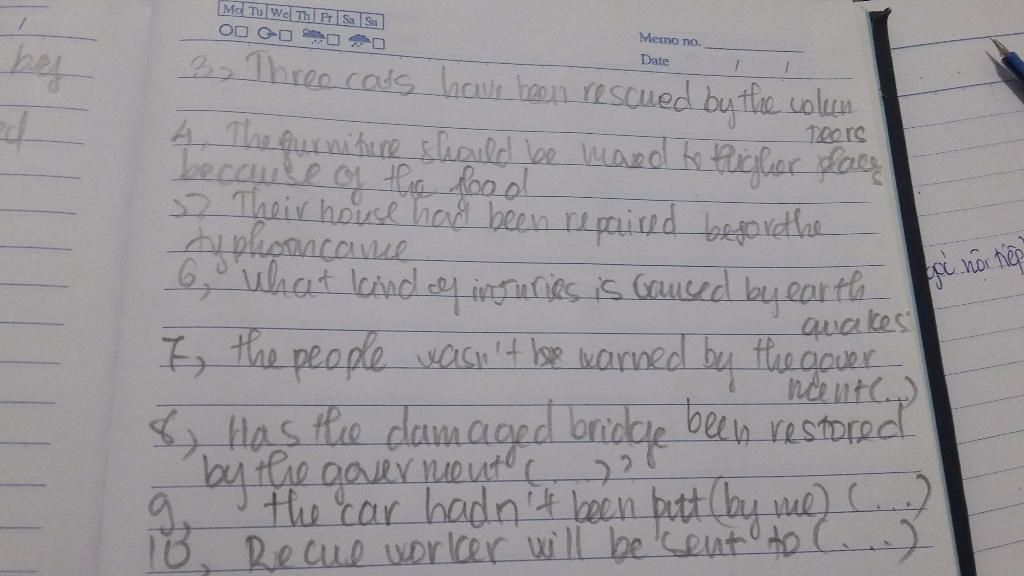 Mo Tu We Th Fr Sa Su
Memo no.
Date / /
bey
ed
3, Three cats have been rescued by the volun
teers
4, The furniture should be moved to higher places
because of the flood
5, Their house had been repaired before the
typhoon came
6, What kind of injuries is caused by earth
quakes
7, the people wasn't be warned by the gover
ment (...)
8, Has the damaged bridge been restored
by the goverment (...)?
9, the car hadn't been putt (by me) (...)
10, Recue worker will be sent to (...)
nối tiếp